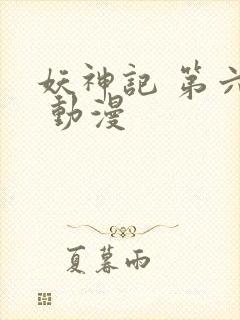 妖神記 第六
動漫
夏暮雨